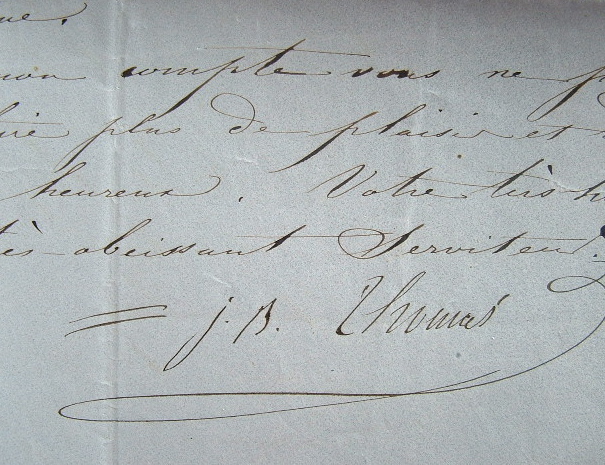 ue.
mon compte vous ne p
ire plus de plaisir et
heureux. Votre très h
très obeissant Serviteur.
= J. B. Thomas